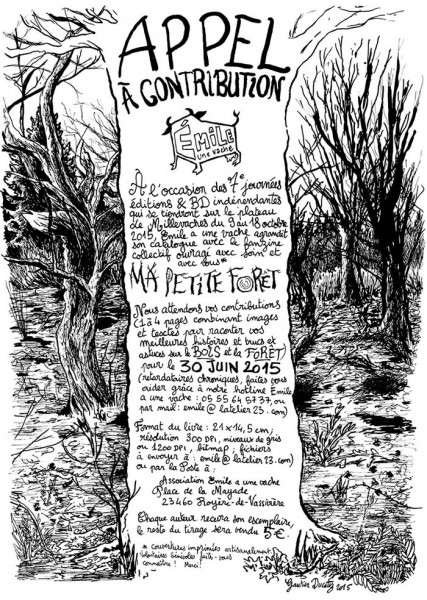 APPEL
À CONTRIBUTION
ÉMILE
une vache
À l'occasion des 7e journées
éditions & BD indépendantes
qui se tiendront sur le plateau
de Millevaches du 9 au 18 octobre
2015, Emile a une vache agrandit
son catalogue avec le fanzine
collectif ouvragé avec soin et
avec vous*
MA PETITE FORÊT
Nous attendons vos contributions
(1 à 4 pages combinant images
et textes pour raconter vos
meilleures histoires et trucs et
astuces sur le BOIS et la FORÊT)
pour le 30 JUIN 2015
(retardataires chroniques, faites vous
aider grâce à notre hotline Emile
a une vache : 05 55 64 57 37, ou
par mail : emile@latelier23.com)
Format du livre : 21 x 14,5 cm ;
résolution 300 DPI, niveaux de gris
ou 1200 DPI, bitmap ; fichiers
à envoyer à : emile@latelier23.com)
ou par la Poste à :
Association Emile a une vache
Place de la Mayade
23460 Royère-de-Vassivière
Chaque auteur recevra son exemplaire,
le reste du tirage sera vendu 5€.
* couvertures imprimées artisanalement
volontaires bénévoles faites-vous
connaître ! Merci !
Gautier Ducatez 2015